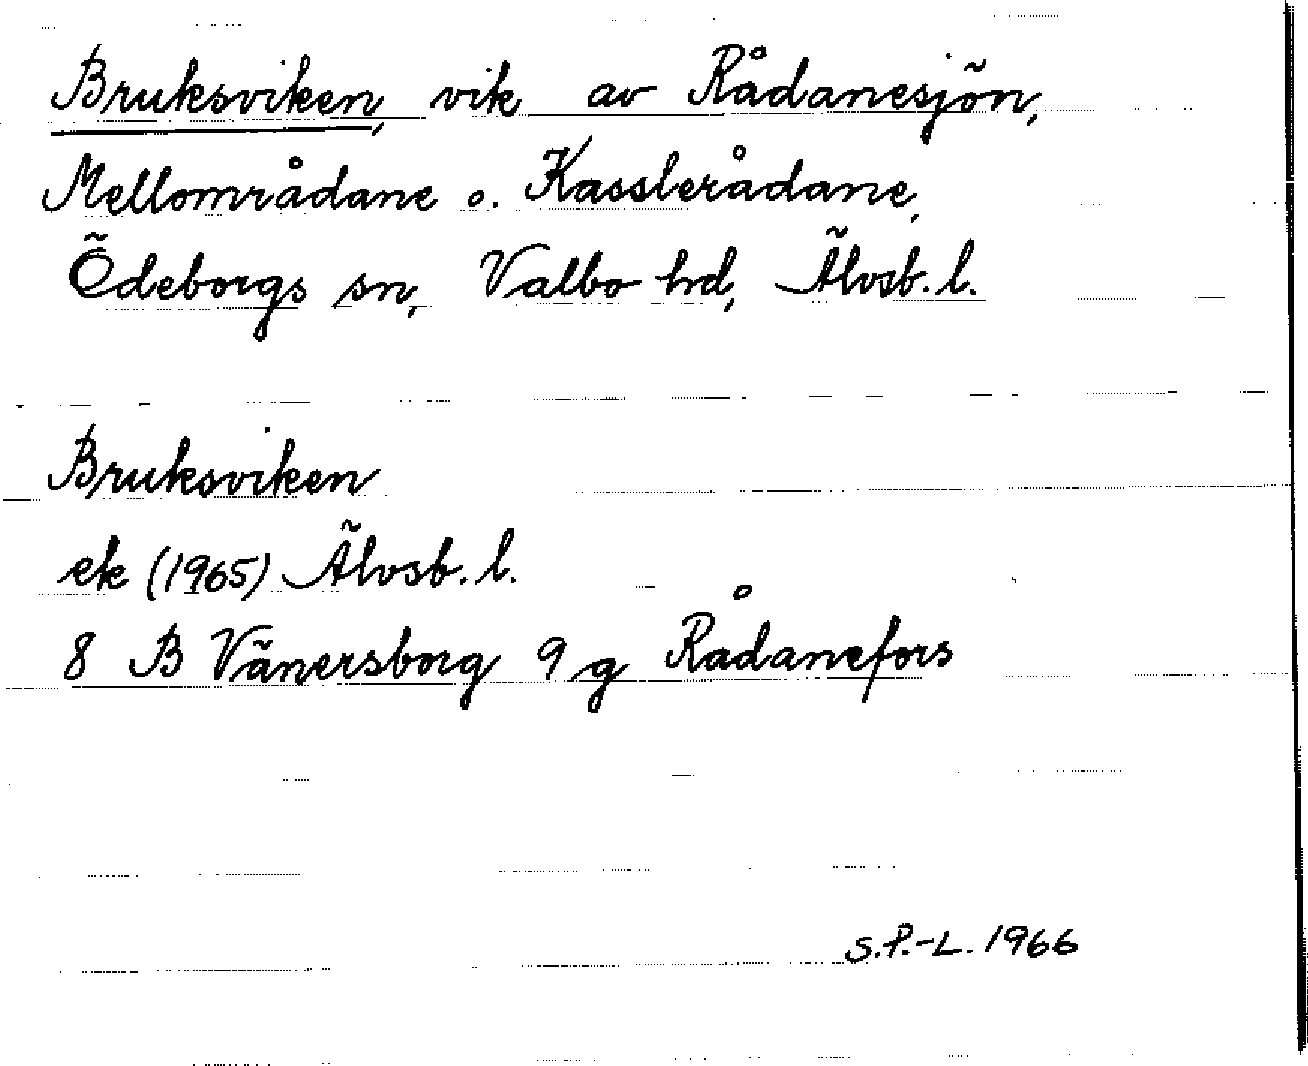 Bruksviken, vik av Rådanesjön,
Mellområdane o. Kasslerådane,
Ödeborgs sn, Valbo hd, Älvsb. l.
Bruksviken
ek (1965) Älvsb. l.
8 B Vänersborg 9 g Rådanefors
S.P.-L. 1966